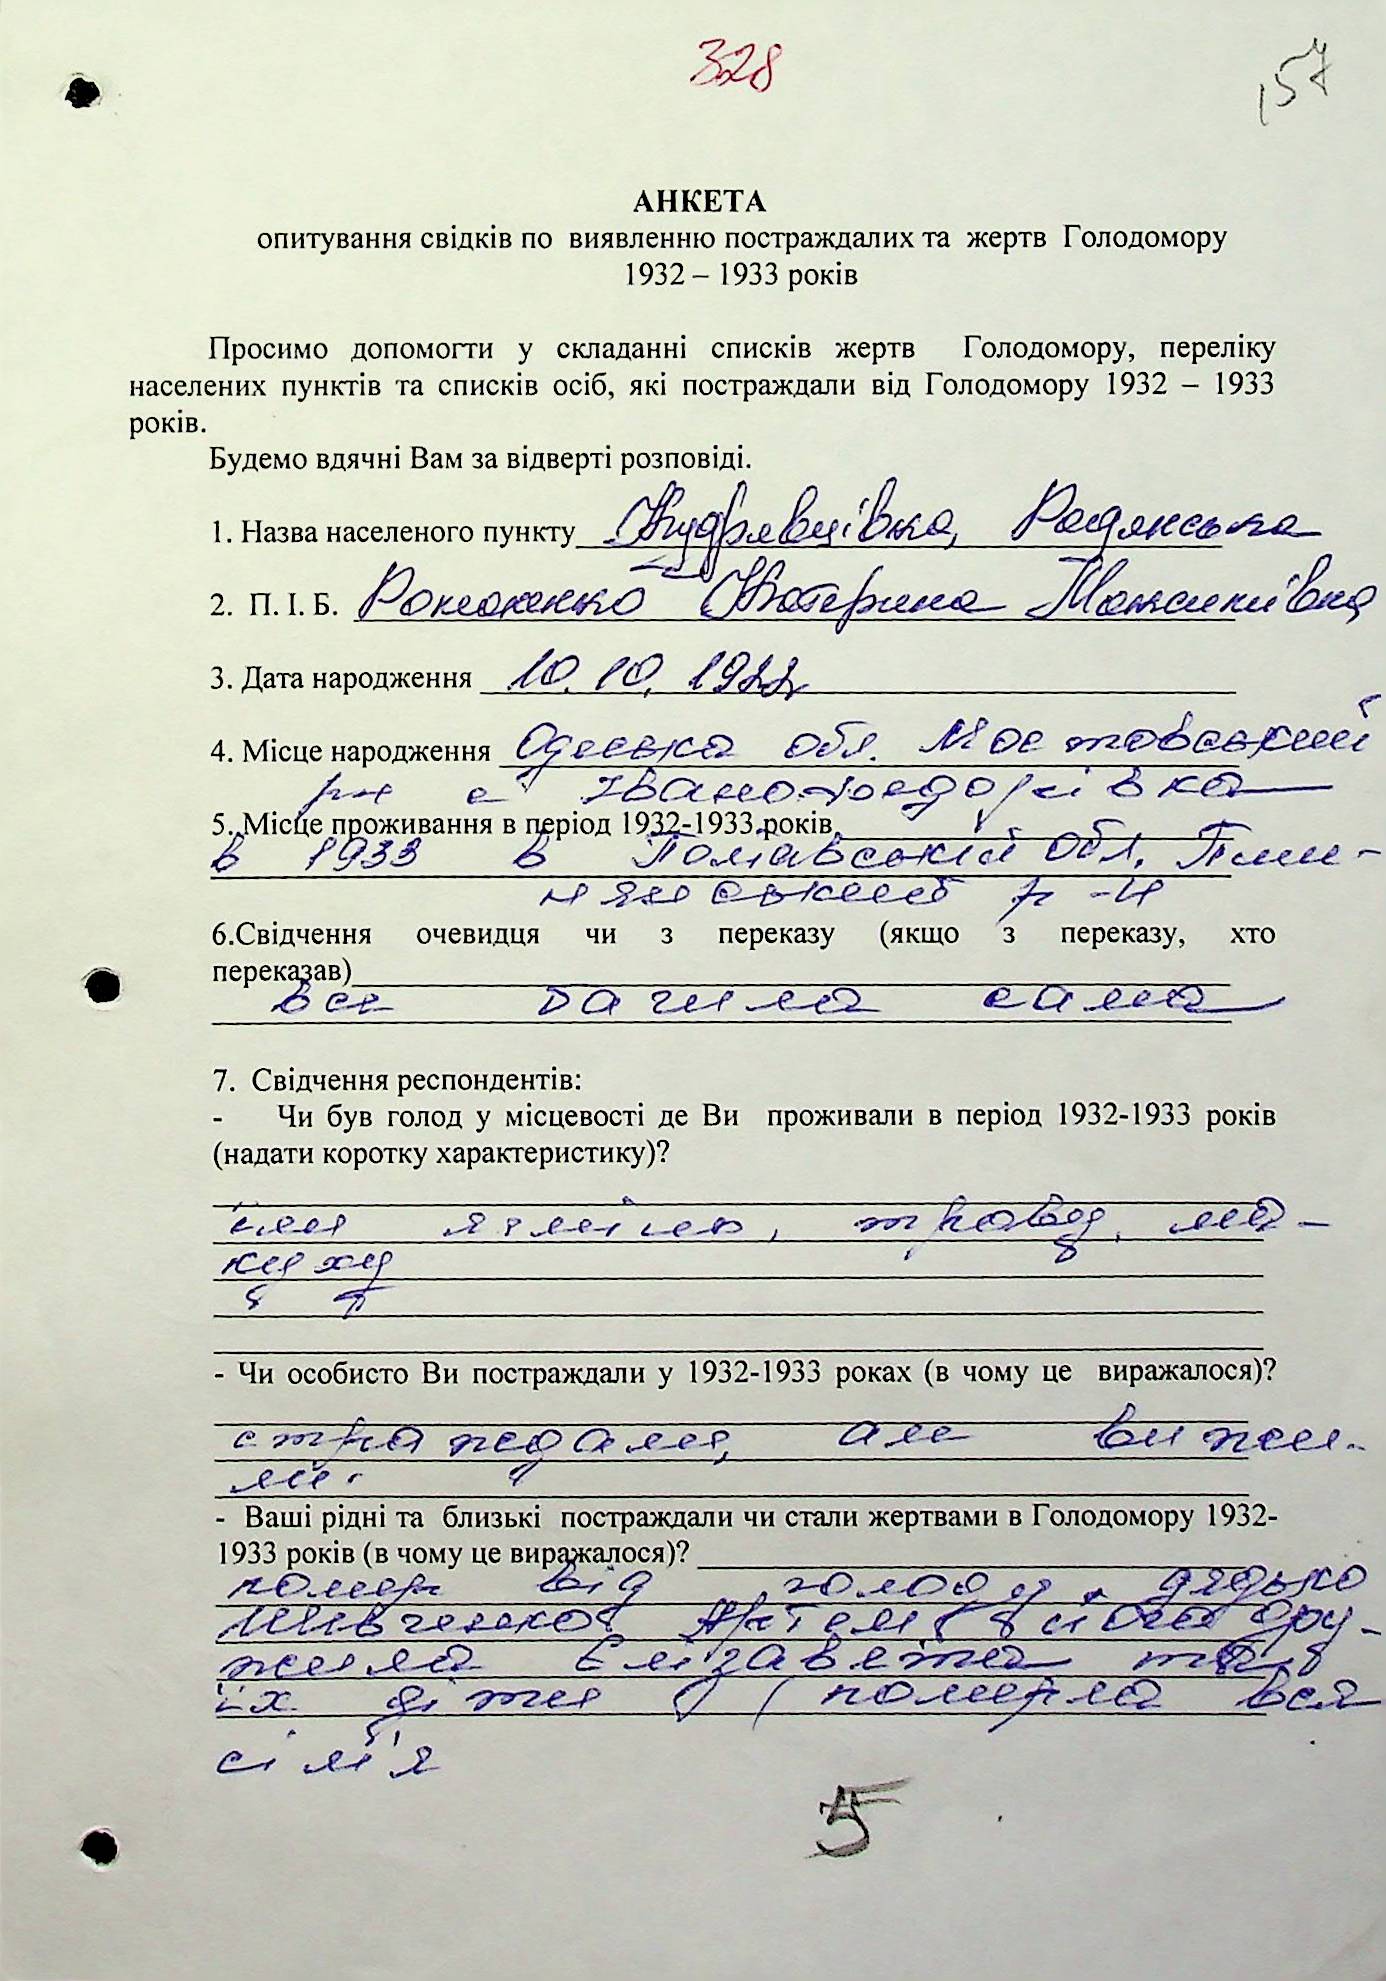 328
157
АНКЕТА
опитування свідків по виявленню постраждалих та жертв Голодомору
1932 – 1933 років
Просимо допомогти у складанні списків жертв Голодомору, переліку
населених пунктів та списків осіб, які постраждали від Голодомору 1932 – 1933
років.
Будемо вдячні Вам за відверті розповіді.
1. Назва населеного пункту Кудрявцівка, Радянська
2. П. І. Б. Романенко Катерина Максимівна
3. Дата народження 10.10.1922
4. Місце народження Одеська обл. Мостовський
р-н с Іванофедорівка
5. Місце проживання в період 1932-1933 років
в 1933 в Полтавській обл.
р-н
6.Свідчення очевидця чи з переказу (якщо з переказу, хто
переказав)
все бачила сама
7. Свідчення респондентів:
- Чи був голод у місцевості де Ви проживали в період 1932-1933 років
(надати коротку характеристику)?
їли траву, ма-
куху
- Чи особисто Ви постраждали у 1932-1933 роках (в чому це виражалося)?
страждали, але вижи-
ли.
- Ваші рідні та близькі постраждали чи стали жертвами в Голодомору 1932-
1933 років (в чому це виражалося)?
помер від голоду дядько
Шевченко Артем і його дру-
жина Єлізавета та
їх діти (померла вся
сім'я
5